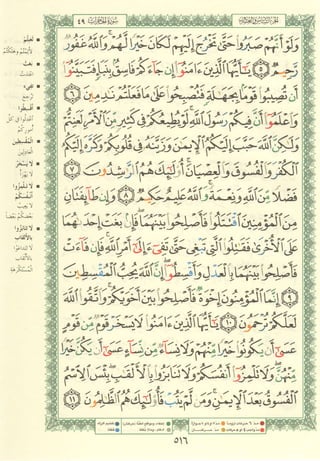 سورة الحجرات ٤٩
الجزء السادس والعشرون
وَلَوْ أَنَّهُمْ صَبَرُوا۟ حَتَّىٰ تَخْرُجَ إِلَيْهِمْ لَكَانَ خَيْرًا لَّهُمْ ۚ وَٱللَّهُ غَفُورٌ
رَّحِيمٌ ٥ يَـٰٓأَيُّهَا ٱلَّذِينَ ءَامَنُوٓا۟ إِن جَآءَكُمْ فَاسِقٌۢ بِنَبَإٍ فَتَبَيَّنُوٓا۟
أَن تُصِيبُوا۟ قَوْمًۢا بِجَهَـٰلَةٍ فَتُصْبِحُوا۟ عَلَىٰ مَا فَعَلْتُمْ نَـٰدِمِينَ ٦
وَٱعْلَمُوٓا۟ أَنَّ فِيكُمْ رَسُولَ ٱللَّهِ ۚ لَوْ يُطِيعُكُمْ فِى كَثِيرٍ مِّنَ ٱلْأَمْرِ لَعَنِتُّمْ
وَلَـٰكِنَّ ٱللَّهَ حَبَّبَ إِلَيْكُمُ ٱلْإِيمَـٰنَ وَزَيَّنَهُۥ فِى قُلُوبِكُمْ وَكَرَّهَ إِلَيْكُمُ
ٱلْكُفْرَ وَٱلْفُسُوقَ وَٱلْعِصْيَانَ ۚ أُو۟لَـٰٓئِكَ هُمُ ٱلرَّٰشِدُونَ ٧
فَضْلًا مِّنَ ٱللَّهِ وَنِعْمَةً ۚ وَٱللَّهُ عَلِيمٌ حَكِيمٌ ٨ وَإِن طَآئِفَتَانِ
مِنَ ٱلْمُؤْمِنِينَ ٱقْتَتَلُوا۟ فَأَصْلِحُوا۟ بَيْنَهُمَا ۖ فَإِنۢ بَغَتْ إِحْدَىٰهُمَا
عَلَى ٱلْأُخْرَىٰ فَقَـٰتِلُوا۟ ٱلَّتِى تَبْغِى حَتَّىٰ تَفِىٓءَ إِلَىٰٓ أَمْرِ ٱللَّهِ ۚ فَإِن فَآءَتْ
فَأَصْلِحُوا۟ بَيْنَهُمَا بِٱلْعَدْلِ وَأَقْسِطُوٓا۟ ۖ إِنَّ ٱللَّهَ يُحِبُّ ٱلْمُقْسِطِينَ
٩ إِنَّمَا ٱلْمُؤْمِنُونَ إِخْوَةٌ فَأَصْلِحُوا۟ بَيْنَ أَخَوَيْكُمْ ۚ وَٱتَّقُوا۟ ٱللَّهَ
لَعَلَّكُمْ تُرْحَمُونَ ١٠ يَـٰٓأَيُّهَا ٱلَّذِينَ ءَامَنُوا۟ لَا يَسْخَرْ قَوْمٌ مِّن قَوْمٍ
عَسَىٰٓ أَن يَكُونُوا۟ خَيْرًا مِّنْهُمْ وَلَا نِسَآءٌ مِّن نِّسَآءٍ عَسَىٰٓ أَن يَكُنَّ خَيْرًا
مِّنْهُنَّ ۖ وَلَا تَلْمِزُوٓا۟ أَنفُسَكُمْ وَلَا تَنَابَزُوا۟ بِٱلْأَلْقَـٰبِ ۖ بِئْسَ ٱلِٱسْمُ
ٱلْفُسُوقُ بَعْدَ ٱلْإِيمَـٰنِ ۚ وَمَن لَّمْ يَتُبْ فَأُو۟لَـٰٓئِكَ هُمُ ٱلظَّـٰلِمُونَ ١١
٥١٦